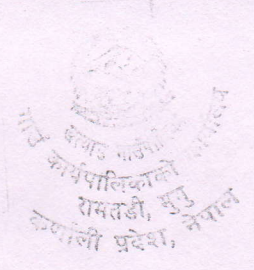 गाउँ कार्यपालिकाको कार्यालय
रामतडी, मुगु
कर्णाली प्रदेश, नेपाल